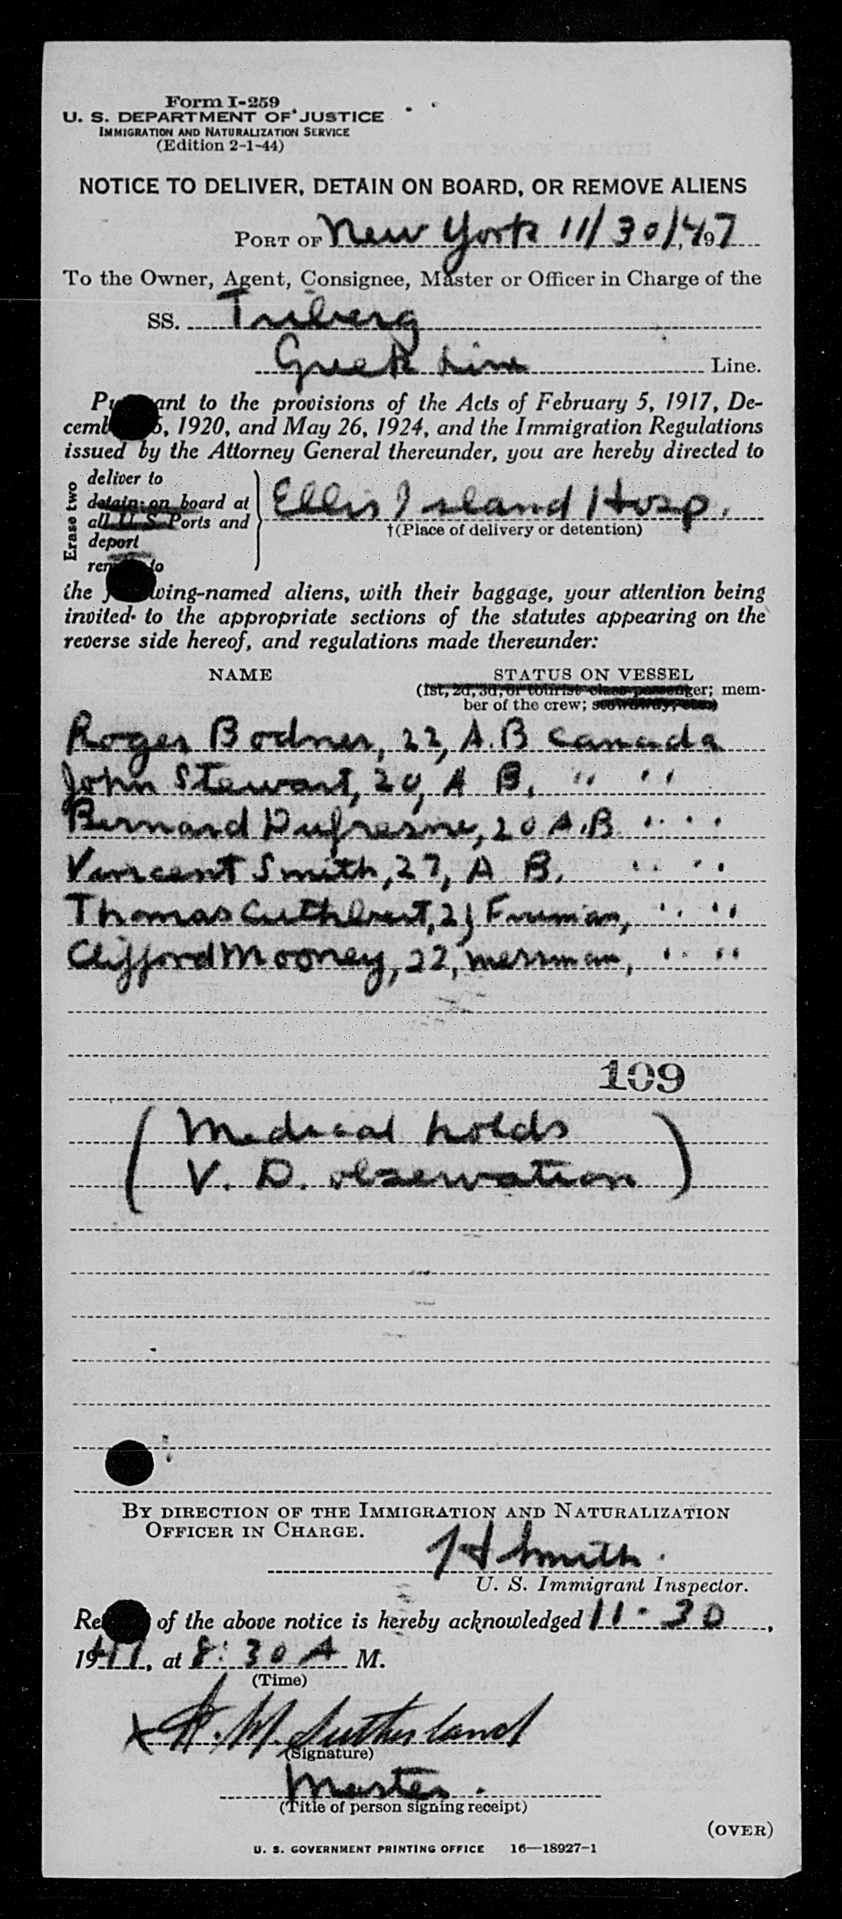 Form I-259
U. S. DEPARTMENT OF JUSTICE
IMMIGRATION AND NATURALIZATION SERVICE
(Edition 2-1-44)
NOTICE TO DELIVER, DETAIN ON BOARD, OR REMOVE ALIENS
PORT OF New York 11/30/, 1947
To the Owner, Agent, Consignee, Master or Officer in Charge of the
SS. Triberg
Greek Line Line.
ant to the provisions of the Acts of February 5, 1917, De-
cemb 5, 1920, and May 26, 1924, and the Immigration Regulations
issued by the Attorney General thereunder, you are hereby directed to
Erase two
deliver to
detain on board at
all U. S. Ports and
deport
to
Ellis Island Hosp.
†(Place of delivery or detention)
the wing-named aliens, with their baggage, your attention being
invited to the appropriate sections of the statutes appearing on the
reverse side hereof, and regulations made thereunder:
NAME STATUS ON VESSEL
(1st, 2d, 3d, or tourist class passenger; mem-
ber of the crew;
Roger Bodner, 22, A.B Canada
John Stewart, 20, A B. " "
Bernard Dufresne, 20 A.B " "
Vincent Smith, 27, A B. " "
Thomas Cuthbert, Fireman, " "
Clifford Mooney, 22, messman, " "
109
(Medical holds
V. D. observation)
BY DIRECTION OF THE IMMIGRATION AND NATURALIZATION
OFFICER IN CHARGE.
H Smith.
U. S. Immigrant Inspector.
Re of the above notice is hereby acknowledged 11-30,
1947, at 8:30 A M.
(Time)
X H. M. Sutherland
(Signature)
Master.
(Title of person signing receipt)
(OVER)
U. S. GOVERNMENT PRINTING OFFICE 16—18927-1